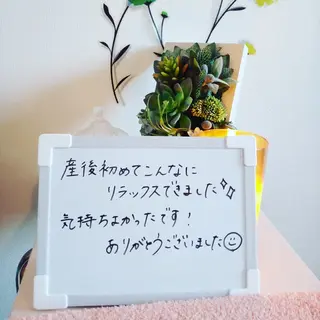 産後初めてこんなに
リラックスできました✨
気持ちよかったです！
ありがとうございました☺